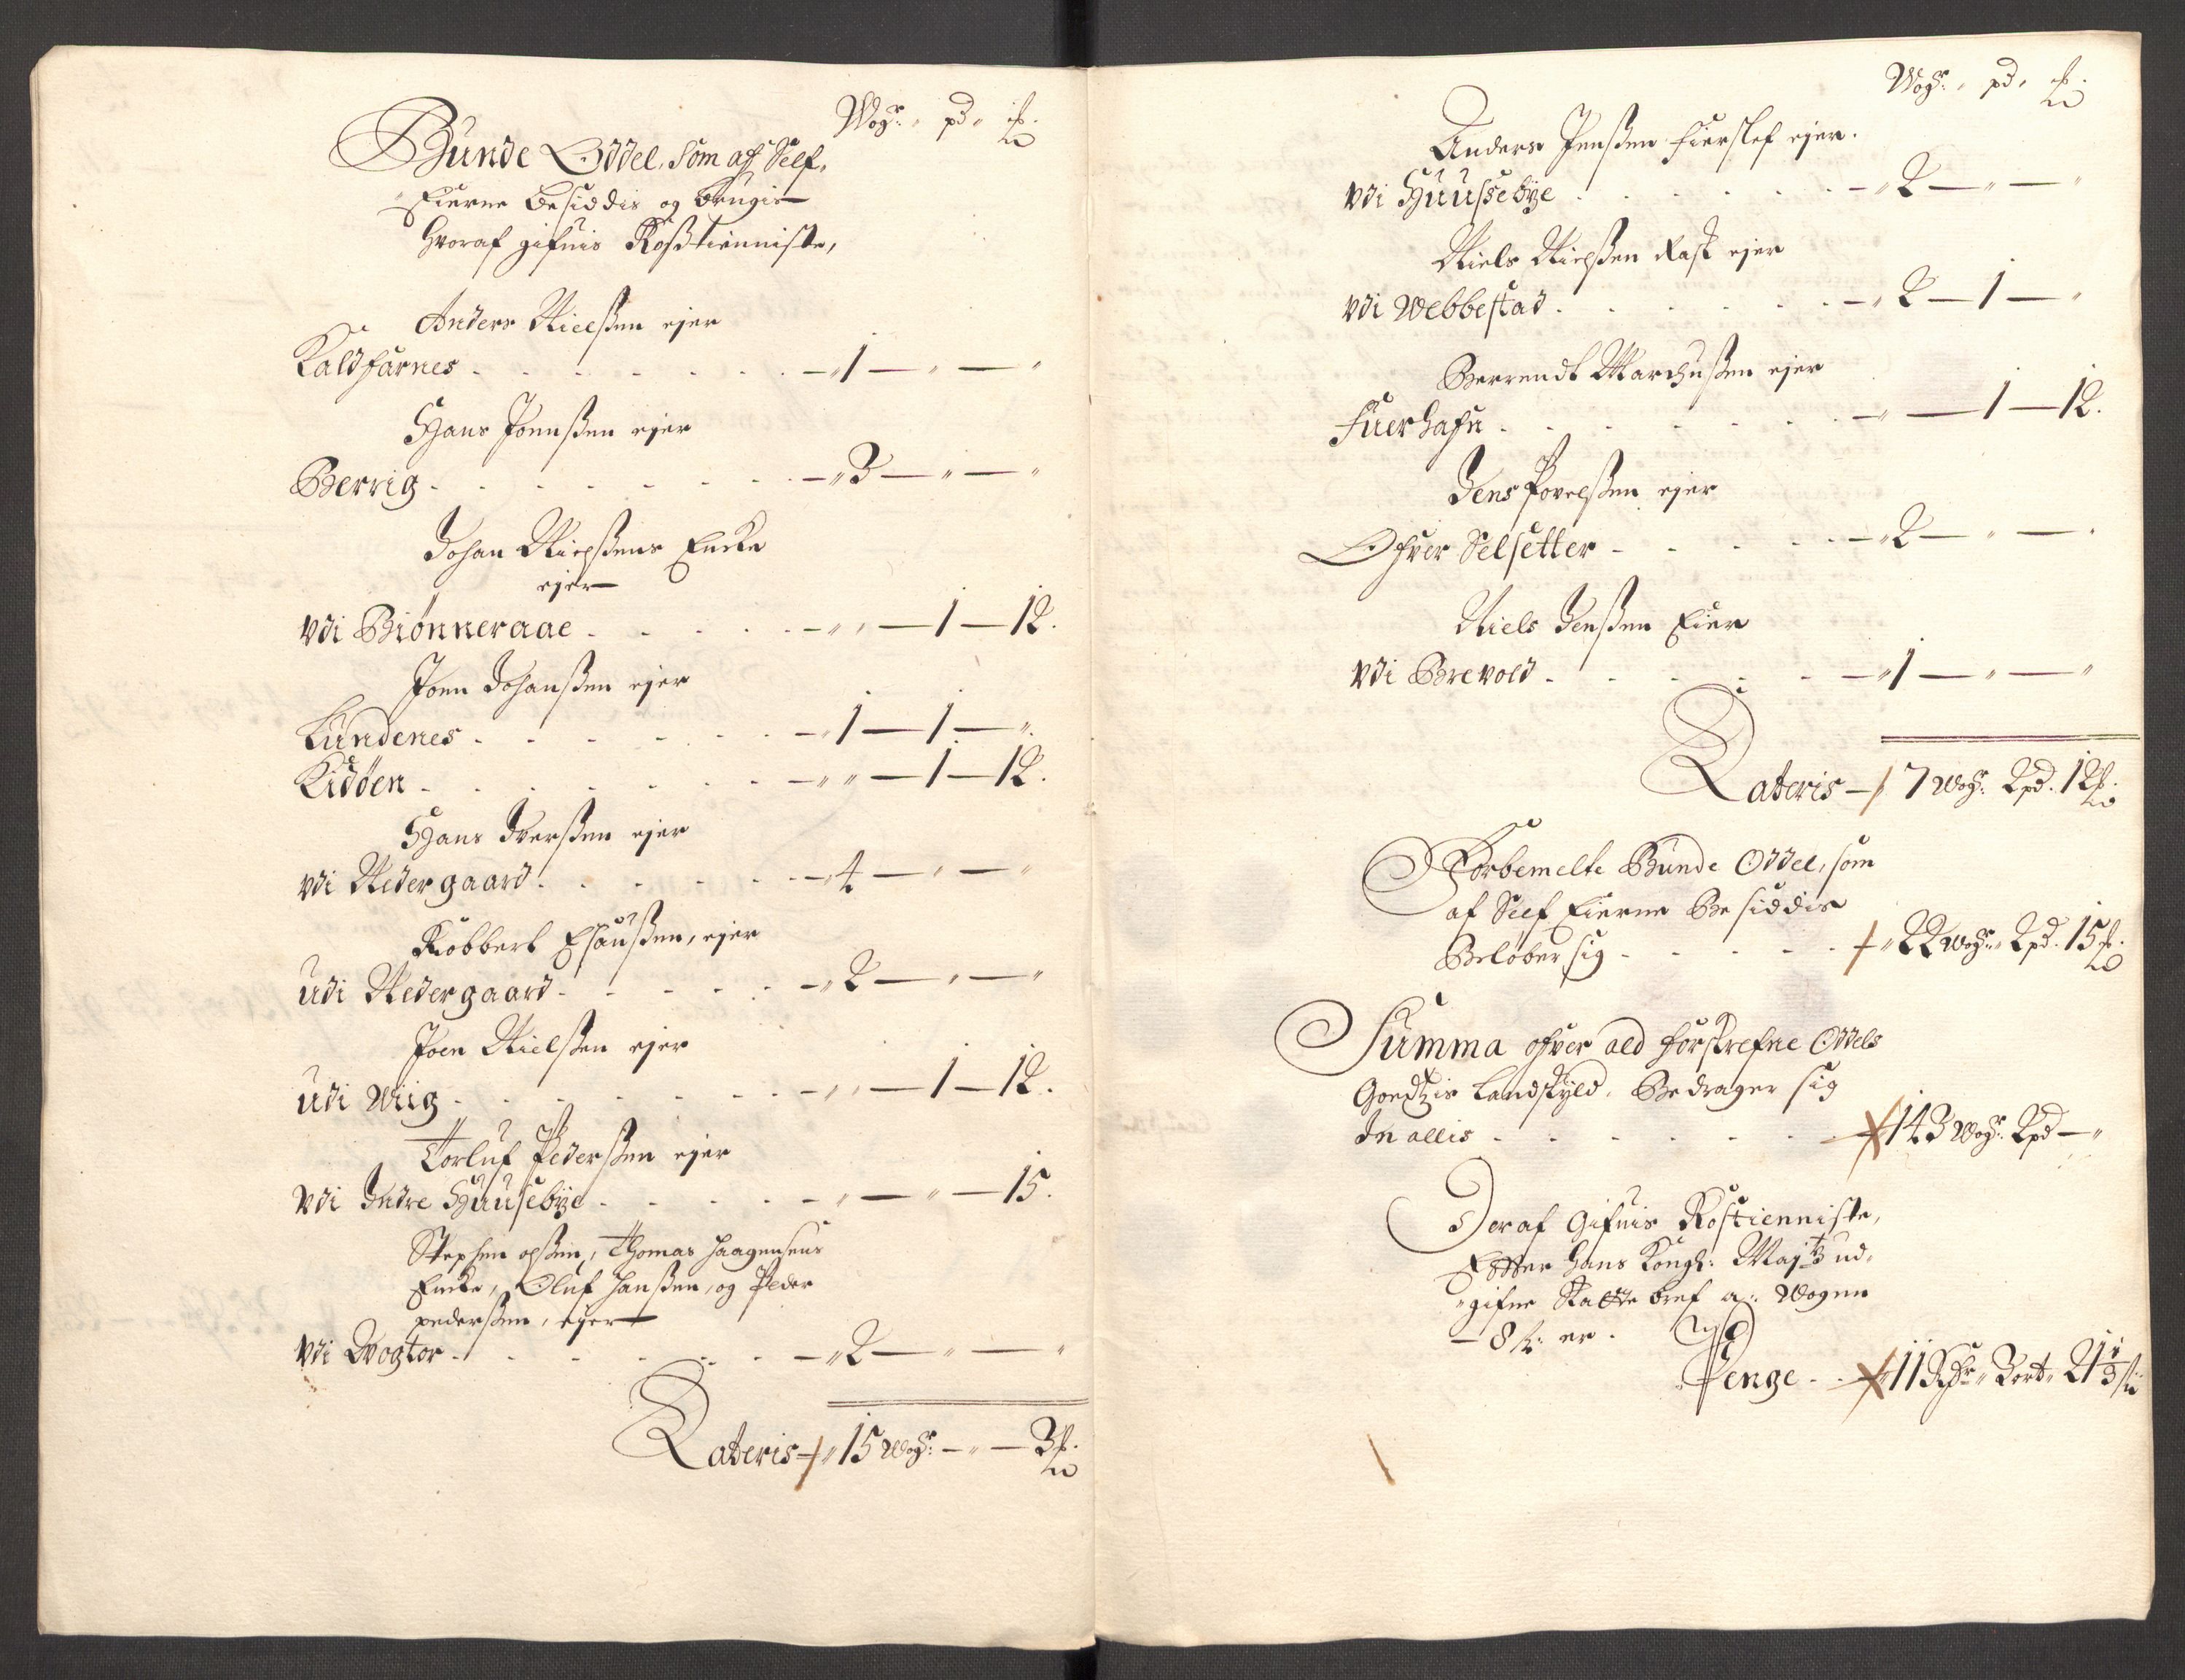 Wogr: pd, ℔.
Bunde Oddel, som aff Self,
Eierne besiddis og brugis
hvoraf gifuis Rosztienniste,
Anders Nielssen ejer
Kaldfarnes - - - - - - - 1 — " — "
Hans Joenssen ejer
Berrig - - - - - - - 3 — " — "
Johan Nielssens Encke
ejer
vdi Biønneraae - - - - - " — 1 — 12.
Joen Johanssen ejer
Lundenes - - - - - - 1 — 1 — "
Kidøen - - - - - - - " — 1 — 12.
Hans Iverssen ejer
vdi Nedergaard - - - - - 4 — " — "
Robbert Esaussen, ejer
udi Nedergaard - - - - - 2 — " — "
Joen Nielssen ejer
udi Wiig - - - - - - - " — 1 — 12.
Torluf Pederssen ejer
vdi Indre Huusebye - - - - " — " — 15.
Stephen olssen, Thomas Haagensens
Encke, Oluf Hanssen, og Peder
pederssen, ejer
vdi Wogtor - - - - - - 2 — " — "
Lateris - 15 Wogr: — " — 3 ℔.
Wogr: pd, ℔.
Anders Jenssen fierslef ejer.
vdi Huussebye - - - - - - 2 — " — "
Niels Nielssen Rask ejer
vdi Webbestad - - - - - - 2 — 1 — "
Berrendt Marchussen ejer
Fuerhafn - - - - - - - " — 1 — 12.
Jens Povelssen ejer
Ofver Selsetter - - - - - 2 — " — "
Niels Jenssen Eier
vdi Brevold - - - - - - 1 — " — "
Lateris - 7 Wogr: 2 pd. 12 ℔.
Forbemelte Bunde Oddel, som
af Self Eierne Besiddis
Beløber sig - - - - - 22 Wogr: 2 pd. 15 ℔.
Summa ofver ald forskrefne Odels
Goedtzis Landskyld, Bedrager sig
In allis - - - - - - 143 Wogr: 2 pd — "
Deraf Gifuis Rostienniste,
Effter Hans Kongl: Maytz ud,
gifne Skatte bref a: Wogen
— 8 s: er.
Penge - - 11 Rdr - 3 ort - 21 1/3 s